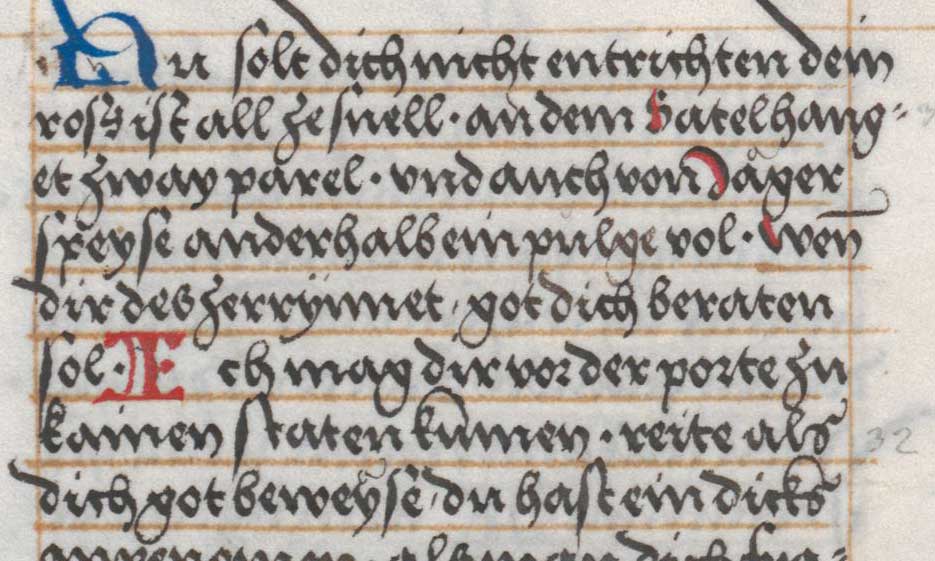 Du solt dich nicht entrichten dein
ross ist all ze snell · an dem Satel hang=
et zway parel · vnd auch von Jager
speyse anderhalb ein pulge vol · Wen̄
dir des zerrynnet · got dich beraten
sol · Ich mag dir vor der porte zu
kainen staten kūmen · reite als
dich got beweyse du hast ein dicks
32